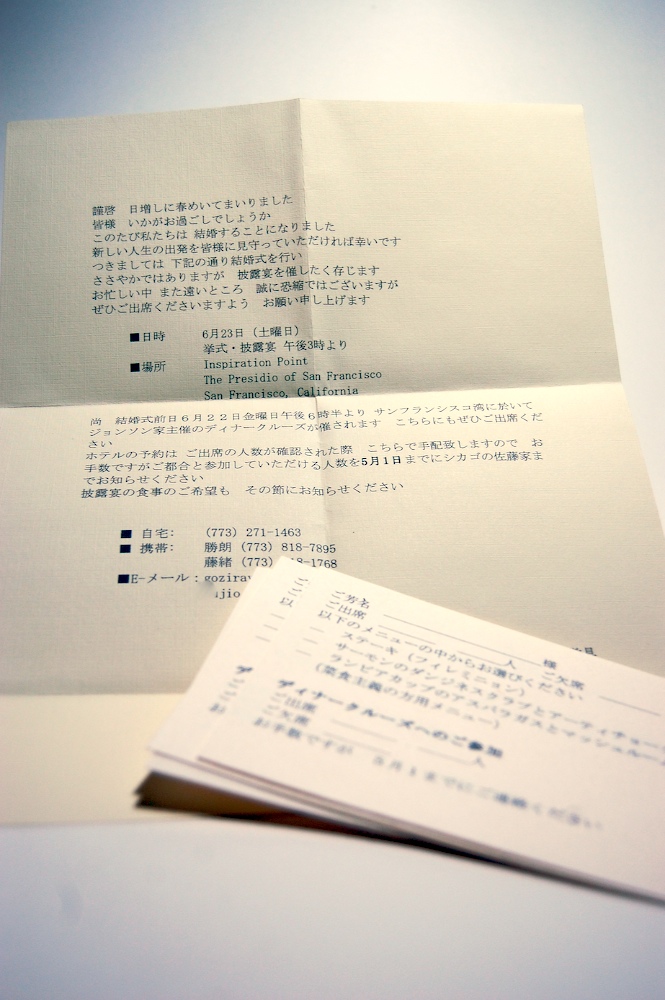 謹啓　日増しに春めいてまいりました
皆様　いかがお過ごしでしょうか
このたび私たちは 結婚することになりました
新しい人生の出発を皆様に見守っていただければ幸いです
つきましては 下記の通り結婚式を行い
ささやかではありますが　披露宴を催したく存じます
お忙しい中 また遠いところ　誠に恐縮ではございますが
ぜひご出席くださいますよう　お願い申し上げます
■日時　6月23日（土曜日）
挙式・披露宴 午後3時より
■場所　Inspiration Point
The Presidio of San Francisco
San Francisco, California
尚　結婚式前日６月２２日金曜日午後６時半より サンフランシスコ湾に於いて
ジョンソン家主催のディナークルーズが催されます　こちらにもぜひご出席くだ
さい
ホテルの予約は ご出席の人数が確認された際　こちらで手配致しますので　お
手数ですがご都合と参加していただける人数を5月1日までにシカゴの佐藤家ま
でお知らせください
披露宴の食事のご希望も　その節にお知らせください
■ 自宅:　(773) 271-1463
■ 携帯:　勝朗 (773) 818-7895
藤緒 (773) 818-1768
■E-メール：gozira
ajio
ご芳名 ________ 様
ご出席 ____ 人　ご欠席 ____
以下のメニューの中からお選びください
ステーキ（フィレミニョン）
サーモンのダンジネスクラブとアーティチョー
ランピアカップのアスパラガスとマッシュルーム
（菜食主義の方用メニュー）
ディナークルーズへのご参加
ご出席 ____ 人
ご欠席 ____
お手数ですが　5月1までにご連絡ください